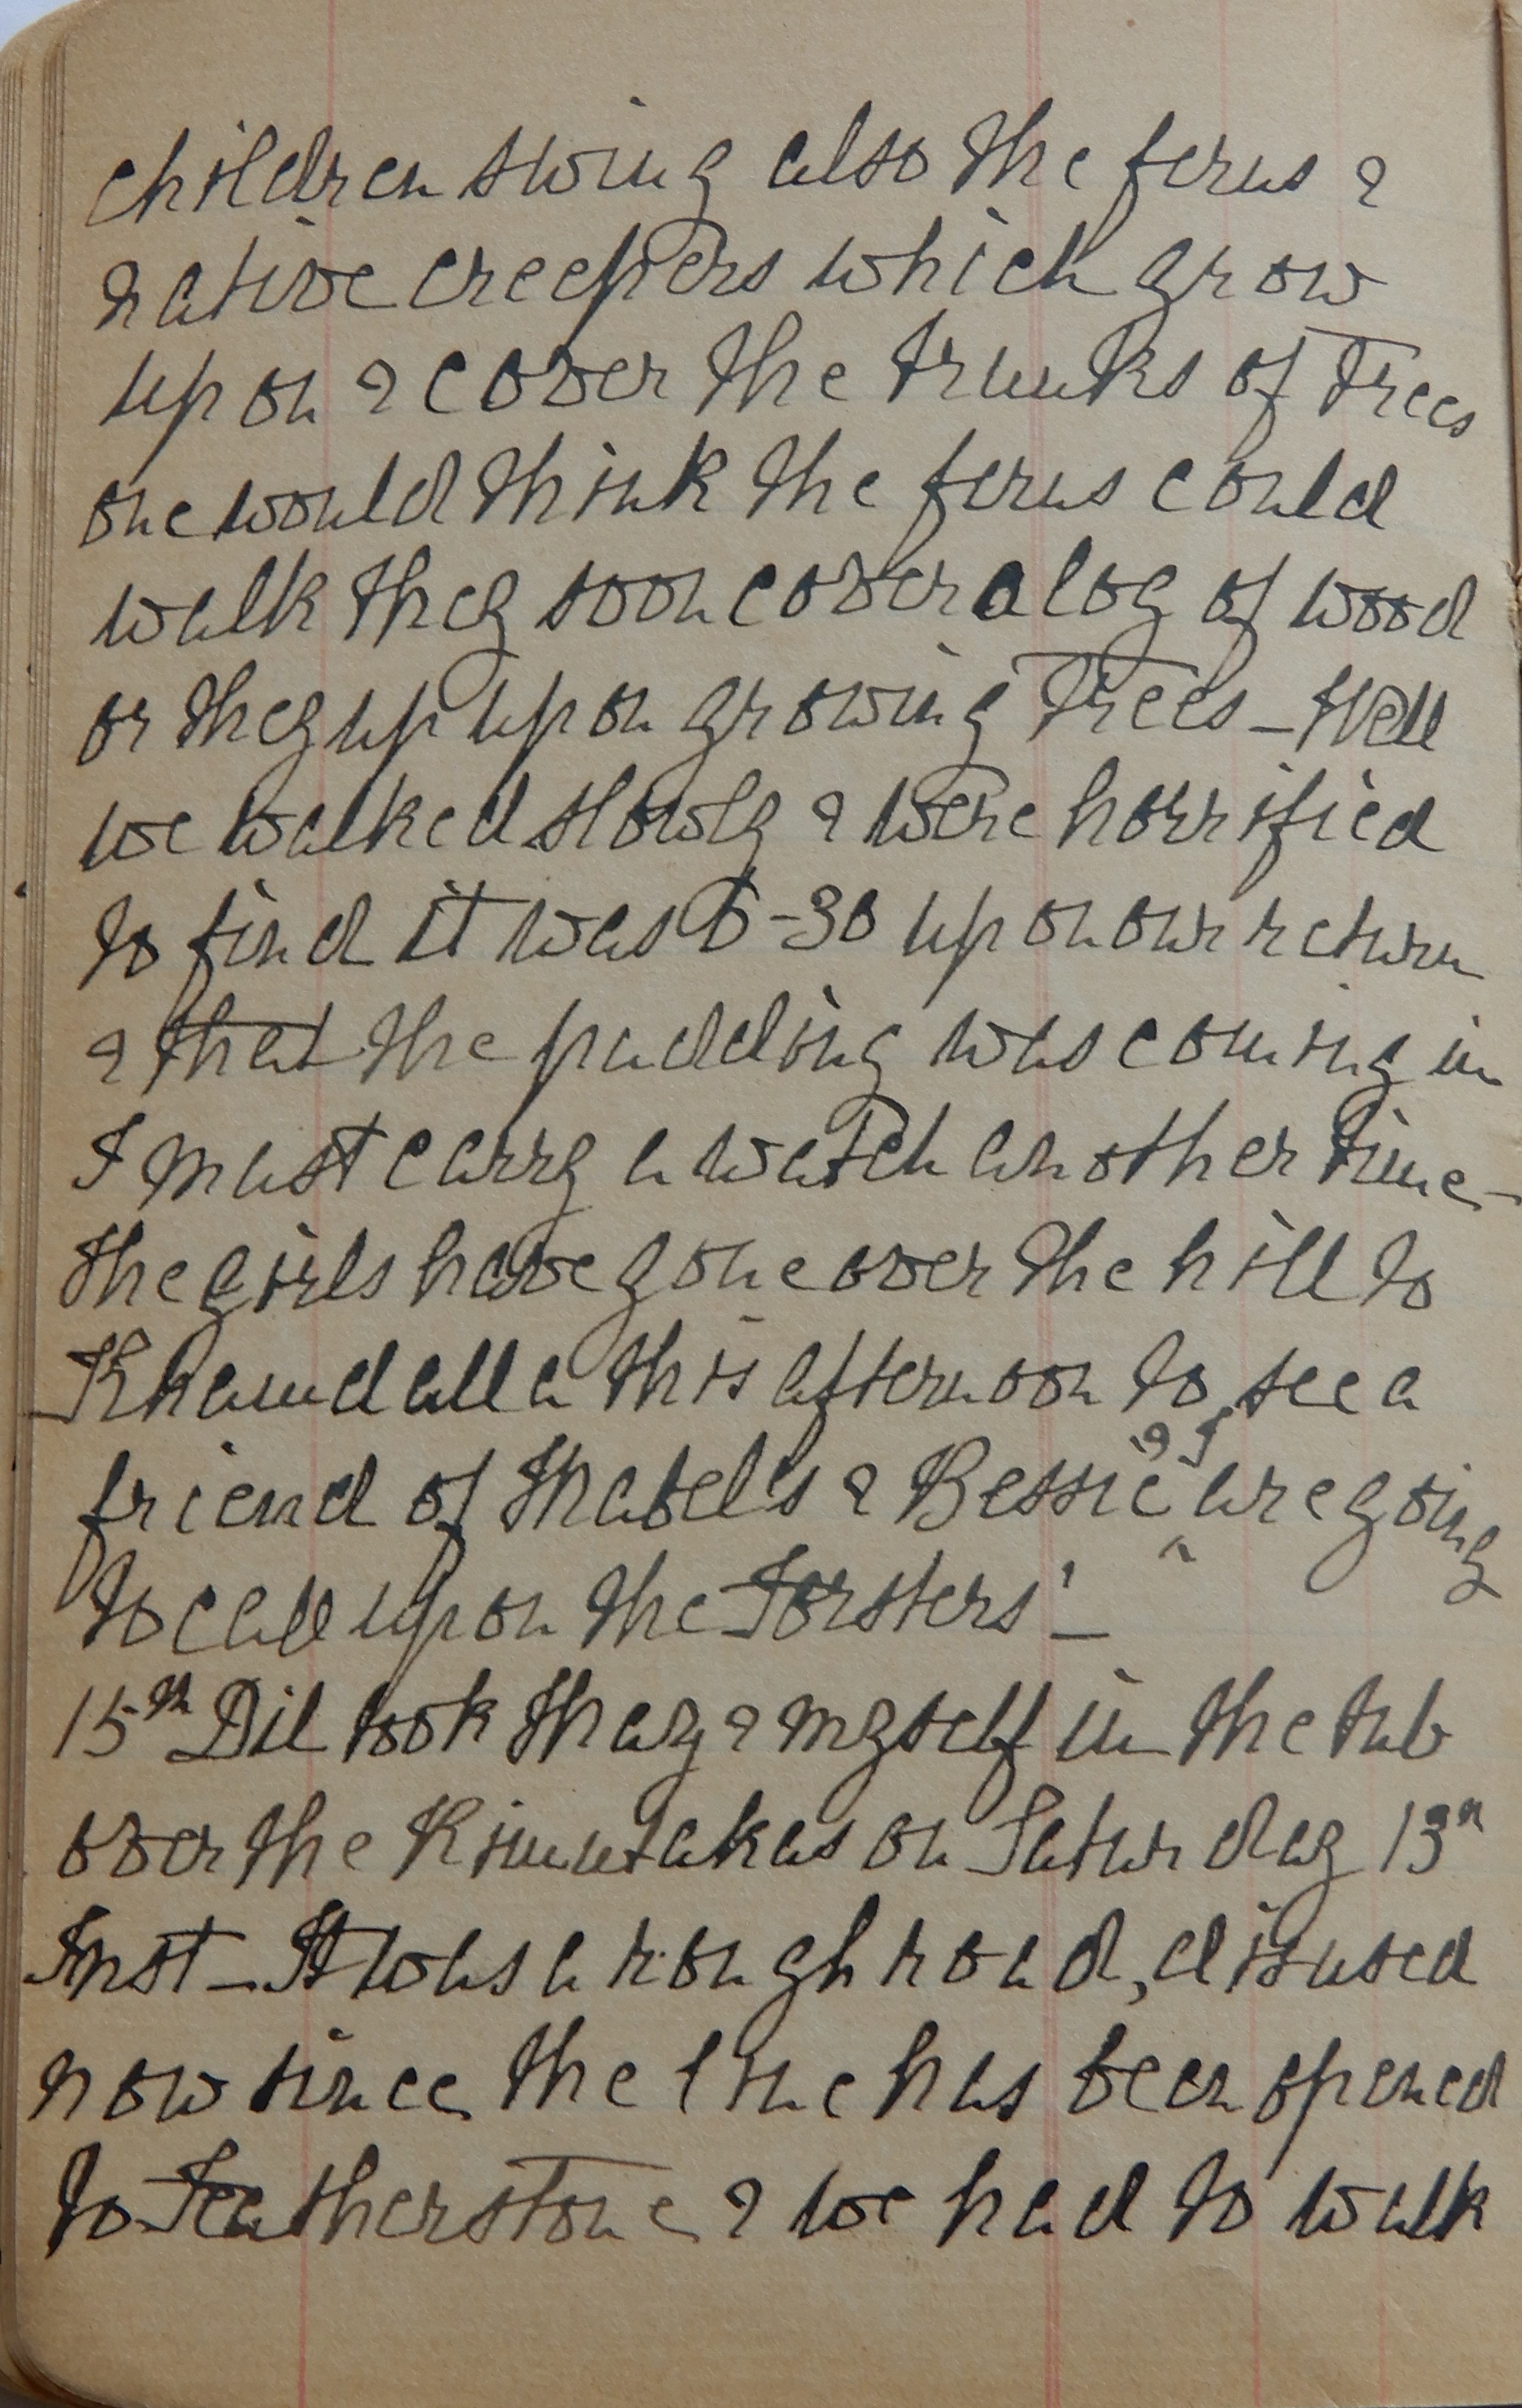 children swing also the ferns &
native creepers which grow
upon & cover the trunks of Trees
one would think the ferns could
walk they soon cover a log of wood
or they up upon growing Trees - Well
we walked slowly & were horrified
to find it was 6-30 upon our return
& that the pudding was coming in
I must carry a watch another time -
the girls have gone over the hill to
Khandalla this afternoon to see a
friend of Mabel's & Bessie & I are going
to call upon the Forsters' -
15th Dil took May & myself in the tub
over the Rimutakas on Saturday 13th
Inst - It was a rough road, disused
now since the line has been opened
to Featherstone & we had to walk